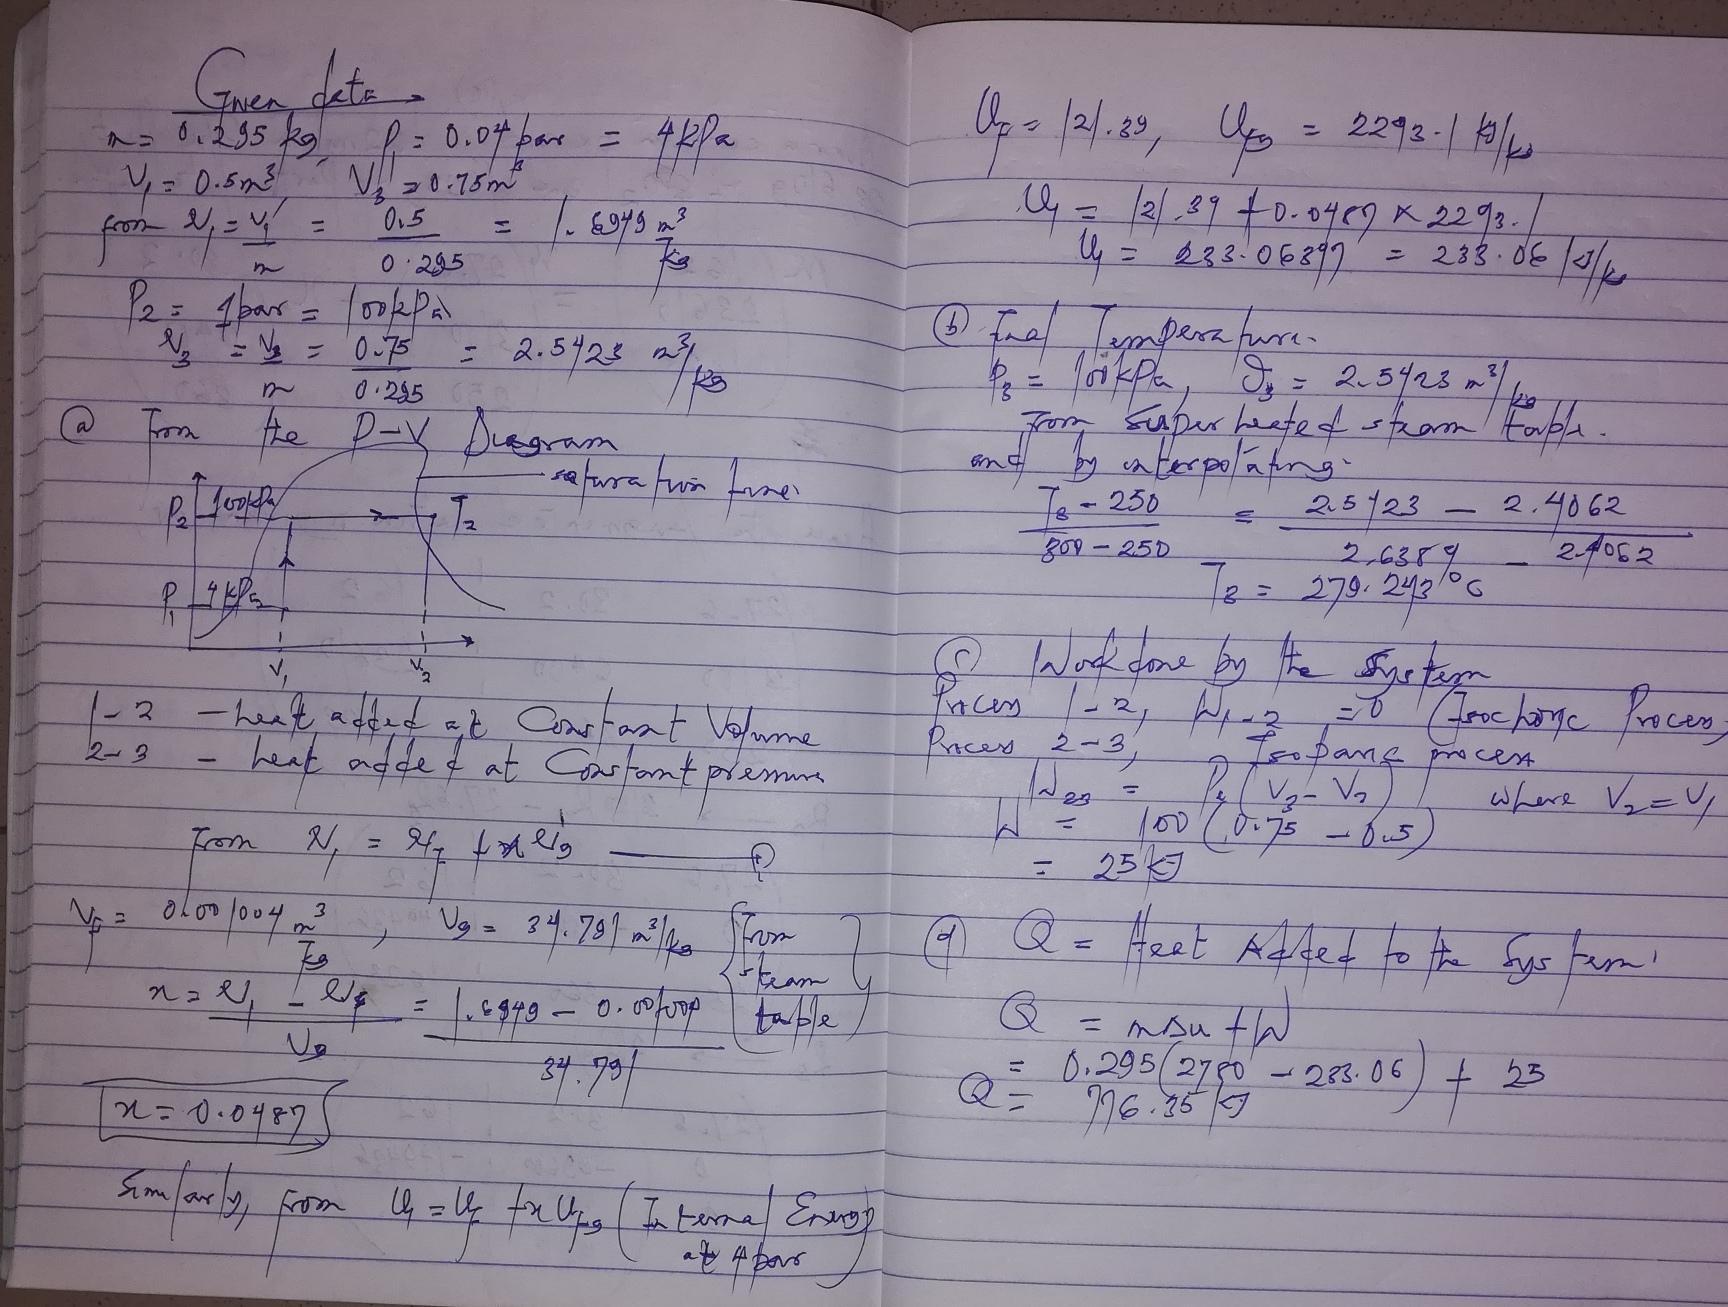 Given data
m = 0.295 kg P₁ = 0.04 bar = 4 kPa
V₁ = 0.5m³ V₃ = 0.75m³
from v₁ = V₁/m = 0.5/0.295 = 1.6949 m³/kg
P₂ = 1 bar = 100 kPa
v₃ = V₃/m = 0.75/0.295 = 2.5423 m³/kg
(a) From the P-V Diagram
saturation line
P₂ 100kPa T₂
P₁ 4kPa
V₁ V₂
1-2 - heat added at Constant Volume
2-3 - heat added at Constant pressure
From v₁ = v_f + x v_g
V_f = 0.001004 m³/kg, V_g = 34.791 m³/kg {From steam table}
x = (v₁ - v_f)/V_g = (1.6949 - 0.001004)/34.791
x = 0.0487
Similarly, from U₁ = U_f + x U_fg (Internal Energy
at 4 bar)
U_f = 121.39, U_fg = 2293.1 kJ/kg
U₁ = 121.39 + 0.0487 × 2293.1
U₁ = 233.06397 = 233.06 kJ/kg
(b) Final Temperature.
P₃ = 100kPa, v₃ = 2.5423 m³/kg
From Superheated steam table.
and by interpolating.
(T₃ - 250)/(300 - 250) = (2.5423 - 2.4062)/(2.6389 - 2.4062)
T₃ = 279.243°C
(c) Workdone by the System
Process 1-2, W₁₋₂ = 0 (Isochoric Process)
Process 2-3, Isobaric process
W₂₃ = P₂(V₃ - V₂) where V₂ = V₁
W = 100(0.75 - 0.5)
= 25 kJ
(d) Q = Heat Added to the System.
Q = mΔu + W
= 0.295(2780 - 233.06) + 25
Q = 776.35 kJ